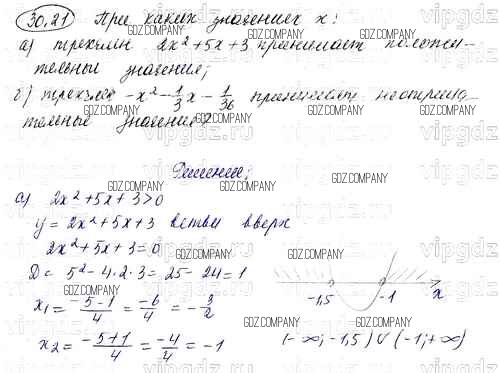 30.21 При каких значениях x:
а) трехчлен 2x² + 5x + 3 принимает положи-
тельные значения;
б) трехчлен -x² - 1/3 x - 1/36 принимает неотрица-
тельные значения?
Решение:
а) 2x² + 5x + 3 > 0
y = 2x² + 5x + 3 ветви вверх
2x² + 5x + 3 = 0
D = 5² - 4·2·3 = 25 - 24 = 1
x₁ = (-5-1)/4 = -6/4 = -3/2
x₂ = (-5+1)/4 = -4/4 = -1
-1,5 -1 x
(-∞; -1,5) ∪ (-1; +∞)
GDZ.COMPANY
vipgdz.ru